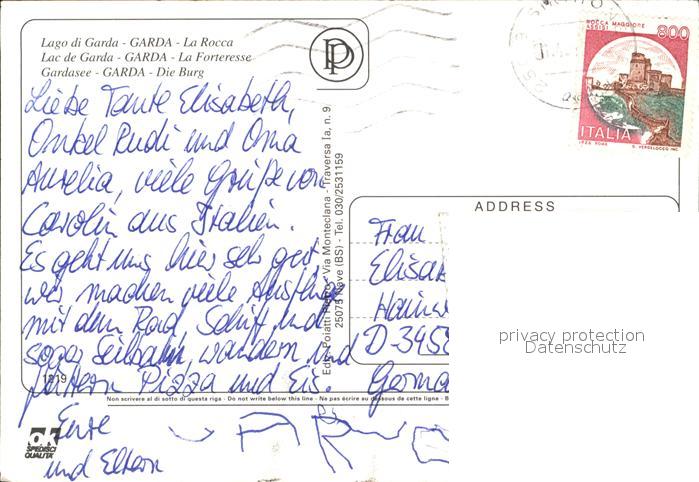 Lago di Garda - GARDA - La Rocca
Lac de Garda - GARDA - La Forteresse
Gardasee - GARDA - Die Burg
PD
ROCCA MAGGIORE
ASSISI
800
ITALIA
Liebe Tante Elisabeth,
Onkel Rudi und Oma
Aurelia, viele Grüße von
Carolin aus Italien.
Es geht uns hier sehr gut
wir machen viele Ausflüge
mit dem Rad, Schiff und
sogar Seilbahn, wandern und
futtern Pizza und Eis.
Eure
und Eltern
Ediz. Poiatti Pietro, Via Monteclana - Traversa Ia, n. 9
25075 Nave (BS) - Tel. 030/2531159
1219
ADDRESS
Frau
Elisab
Hainw
D-3458
Germa
privacy protection
Datenschutz
Non scrivere al di sotto di questa riga - Do not write below this line - Ne pas écrire au dessous de cette ligne - B
ok
SPEDISCI
QUALITA'